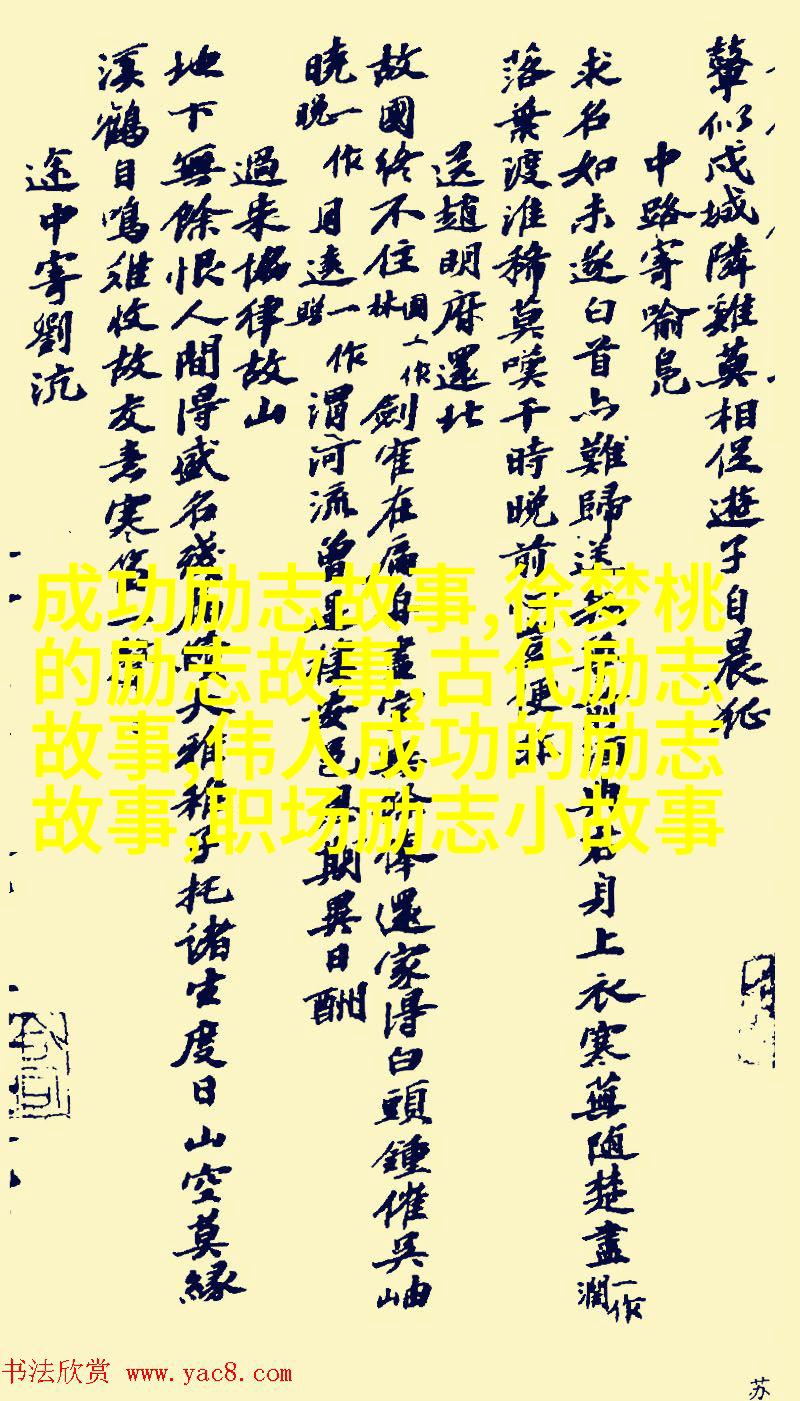 葦似戍城隣雞莫相促遊子自晨征
中路寄喻凫
求名如未遂白首亦難歸送
君身上衣寒蕪隨楚盡一作澗
落葉渡淮稀莫嘆干時晚前
便非
送趙明府還北
故國終不住國一作林劍
在扁舟
捧還家得白頭鍾催吳岫
曉一作晚
月遠一作
渭河流曾是
安邑
期異日酬
過朱協律故山
地下無餘恨人間得盛名殘
大雅稚子托諸生度日山空莫緣
溪鶴自鳴難收故友
書寒
途中寄劉沆
成功励志故事,徐梦桃
的励志故事,古代励志
故事,伟人成功的励志
故事,职场励志小故事
书法欣赏 www.yac8.com
苏